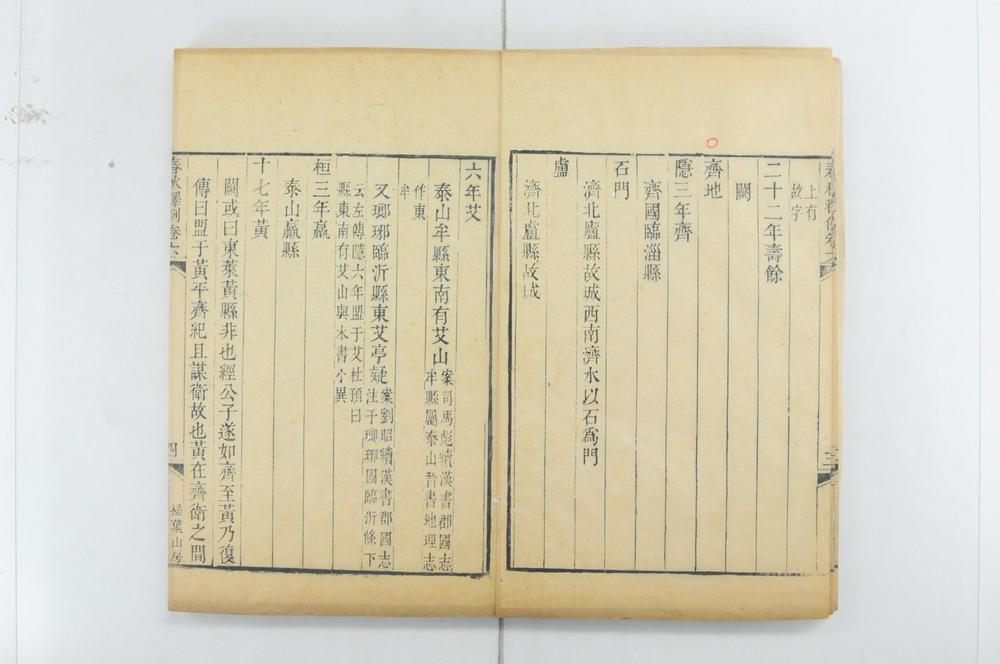 上有
故字
二十二年壽餘
闕
齊地
隱三年齊
齊國臨淄縣
石門
濟北盧縣故城西南濟水以石爲門
盧
濟北盧縣故城
六年艾
泰山牟縣東南有艾山
案司馬彪續漢書郡國志
牟縣屬泰山晉書地理志
作東
牟
又瑯琊臨沂縣東艾亭疑
案劉昭續漢書郡國志
注于瑯琊國臨沂條下
云左傳隱六年盟于艾杜預曰
縣東南有艾山與本書小異
桓三年嬴
泰山嬴縣
十七年黃
闕或曰東萊黃縣非也經公子遂如齊至黃乃復
傳曰盟于黃平齊紀且謀衛故也黃在齊衛之間
春秋釋例卷六
四
掃葉山房